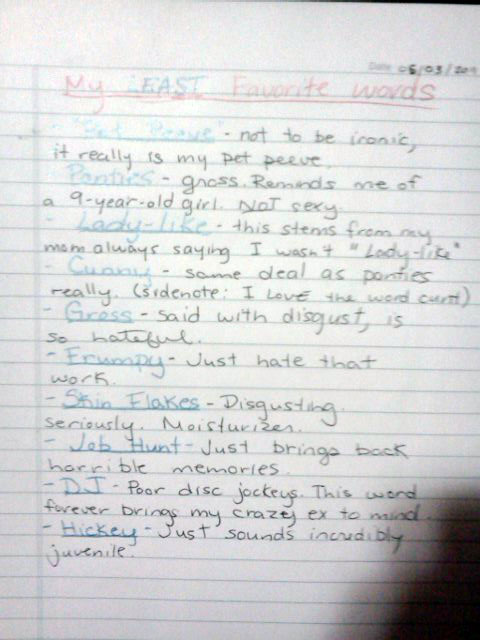 Date 05/03/201
My LEAST Favorite words
- "Pet Peeve" - not to be ironic,
it really is my pet peeve.
Panties - gross. Reminds me of
a 9-year-old girl. NOT sexy.
- Lady-like - this stems from my
mom always saying I wasn't "Lady-like"
- Cunny - same deal as panties
really. (sidenote: I LOVE the word cunt)
- Gross - said with disgust, is
so hateful.
- Frumpy - Just hate that
work.
- Skin Flakes - Disgusting.
seriously. Moisturizer.
- Job Hunt - Just brings back
horrible memories.
- DJ - Poor disc jockeys. This word
forever brings my crazy ex to mind.
- Hickey - Just sounds incredibly
juvenile.